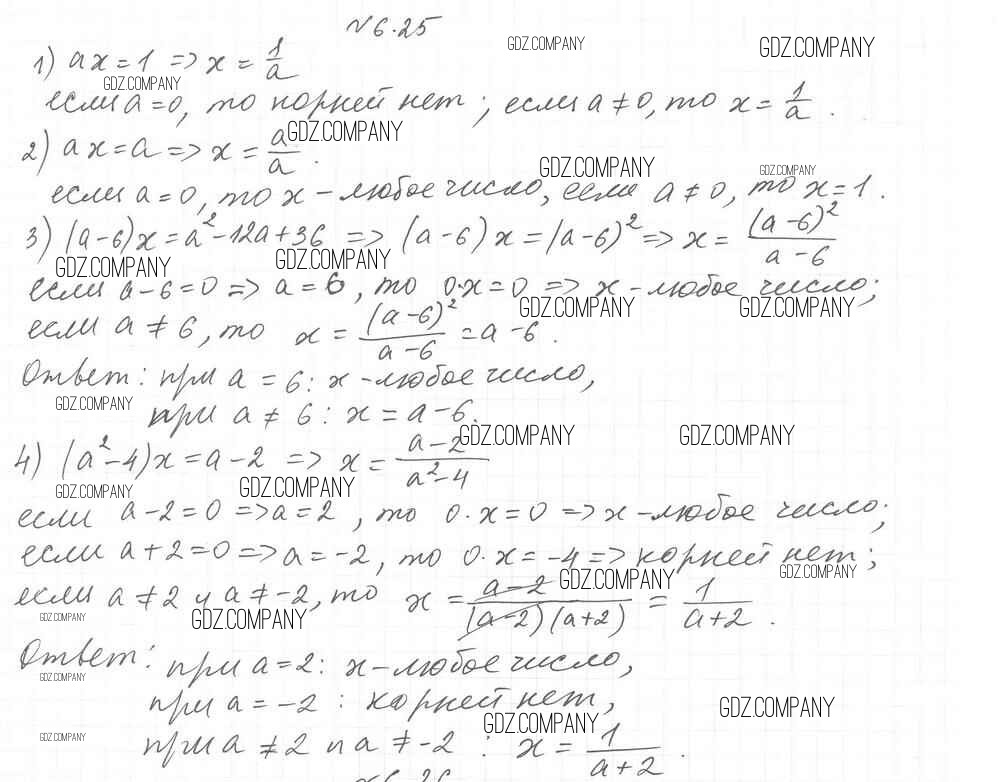 №6.25
GDZ.COMPANY GDZ.COMPANY
1) ax = 1 => x = 1/a
GDZ.COMPANY
если a = 0, то корней нет; если a ≠ 0, то x = 1/a.
2) ax = a => x = a/a. GDZ.COMPANY
GDZ.COMPANY GDZ.COMPANY
если a = 0, то x – любое число, если a ≠ 0, то x = 1.
3) (a-6)x = a²-12a+36 => (a-6)x = (a-6)² => x = (a-6)²/(a-6)
GDZ.COMPANY GDZ.COMPANY
если a-6=0 => a = 6, то 0·x=0 => x – любое число;
GDZ.COMPANY GDZ.COMPANY
если a ≠ 6, то x = (a-6)²/(a-6) = a-6.
Ответ: при a = 6: x – любое число,
GDZ.COMPANY
при a ≠ 6: x = a-6.
GDZ.COMPANY GDZ.COMPANY
4) (a²-4)x = a-2 => x = (a-2)/(a²-4)
GDZ.COMPANY GDZ.COMPANY
если a-2=0 => a=2, то 0·x=0 => x – любое число;
если a+2=0 => a=-2, то 0·x=-4 => корней нет;
GDZ.COMPANY GDZ.COMPANY
если a≠2 и a≠-2, то x = (a-2)/((a-2)(a+2)) = 1/(a+2).
GDZ.COMPANY GDZ.COMPANY
Ответ: при a=2: x – любое число,
GDZ.COMPANY
при a = -2: корней нет,
GDZ.COMPANY GDZ.COMPANY
GDZ.COMPANY
при a ≠ 2 и a ≠ -2: x = 1/(a+2).
№6.26